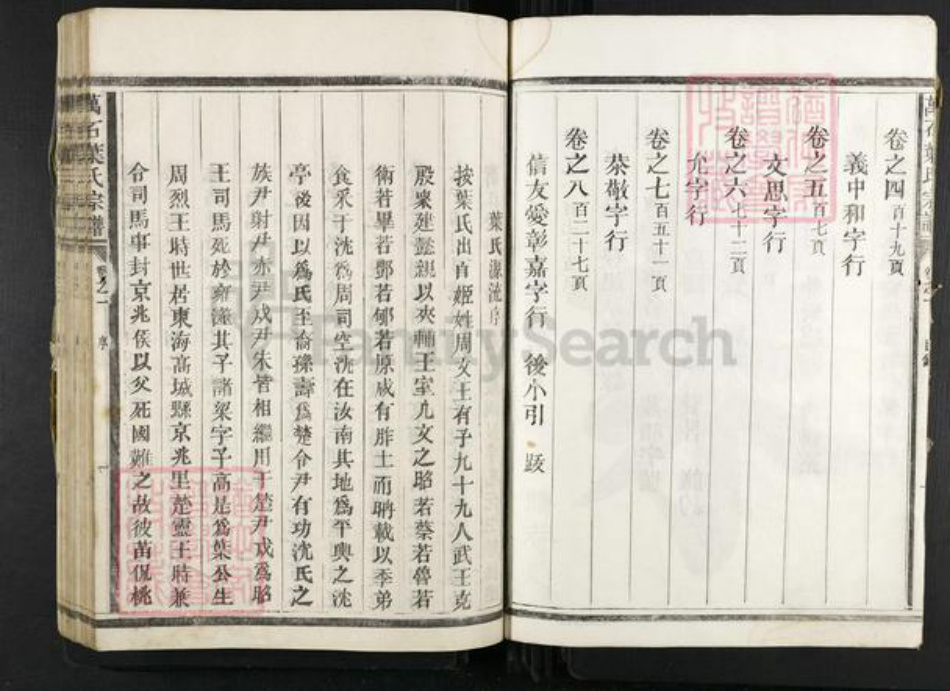 卷之四 百十九頁
義中和字行
卷之五 百七頁
文思字行
卷之六 七十二頁
允字行
卷之七 百五十一頁
恭敬字行
卷之八 百二十七頁
信友愛彰嘉字行 後小引 跋
葉氏源流序
按葉氏出自姬姓周文王有子九十九人武王克
殷衆建懿親以夾輔王室凡文之昭若蔡若魯若
衛若畢若酆若郇若原咸有胙土而聃載以季弟
食采于沈爲周司空沈在汝南其地爲平輿之沈
亭後因以爲氏至裔孫壽爲楚令尹有功沈氏之
族尹射尹赤尹戌尹朱皆相繼用于楚尹戌爲昭
王司馬死於雍澨其子諸梁字子高是爲葉公生
周烈王時世居東海高城縣京兆里楚靈王時兼
令司馬事封京兆侯以父死國難之故彼苗侃桃
萬石葉氏宗譜 卷之一 序 一
FamilySearch